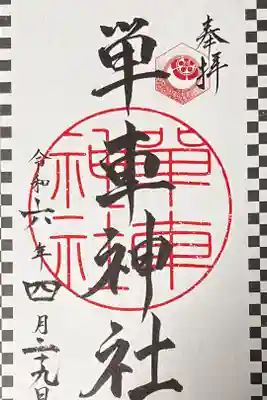 奉拝
単車神社
單車神社
令和六年四月二十九日